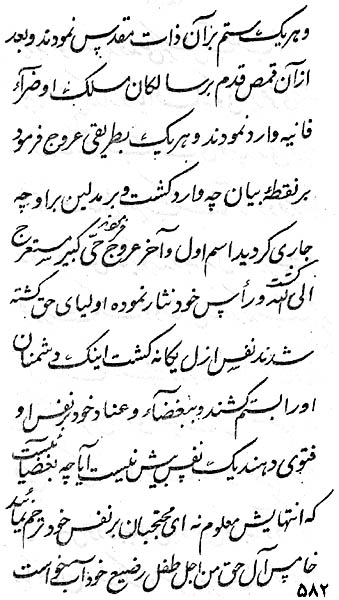 و هریک ستم بر آن ذات مقدس نمودند و بعد
از آن قمص قدم بر سالکان مسلک او ضرآء
فانیه وارد نمودند و هریک بطریقی عروج فرمود
بر نقطهٔ بیان چه وارد گشت و بر مدلین بر او چه
جاری گردید اسم اول و آخر عروج حی کبیر مستعرج
الی الله گشت و رأس خود نثار نموده اولیای حق کشته
شدند نفس ازل یگانه گشت اینک دشمنان
او را بستم کشند و ببغضآء و عناد خود بر نفس او
فتوی دهند یک نفس بیش نیست آیا چه بغضآئیست
که انتهایش معلوم نه ای محتجبان بر نفس خود ترحم نمائید
خامس آل حق من اجل طفل رضیع خود آب میخواست
۵۸۲